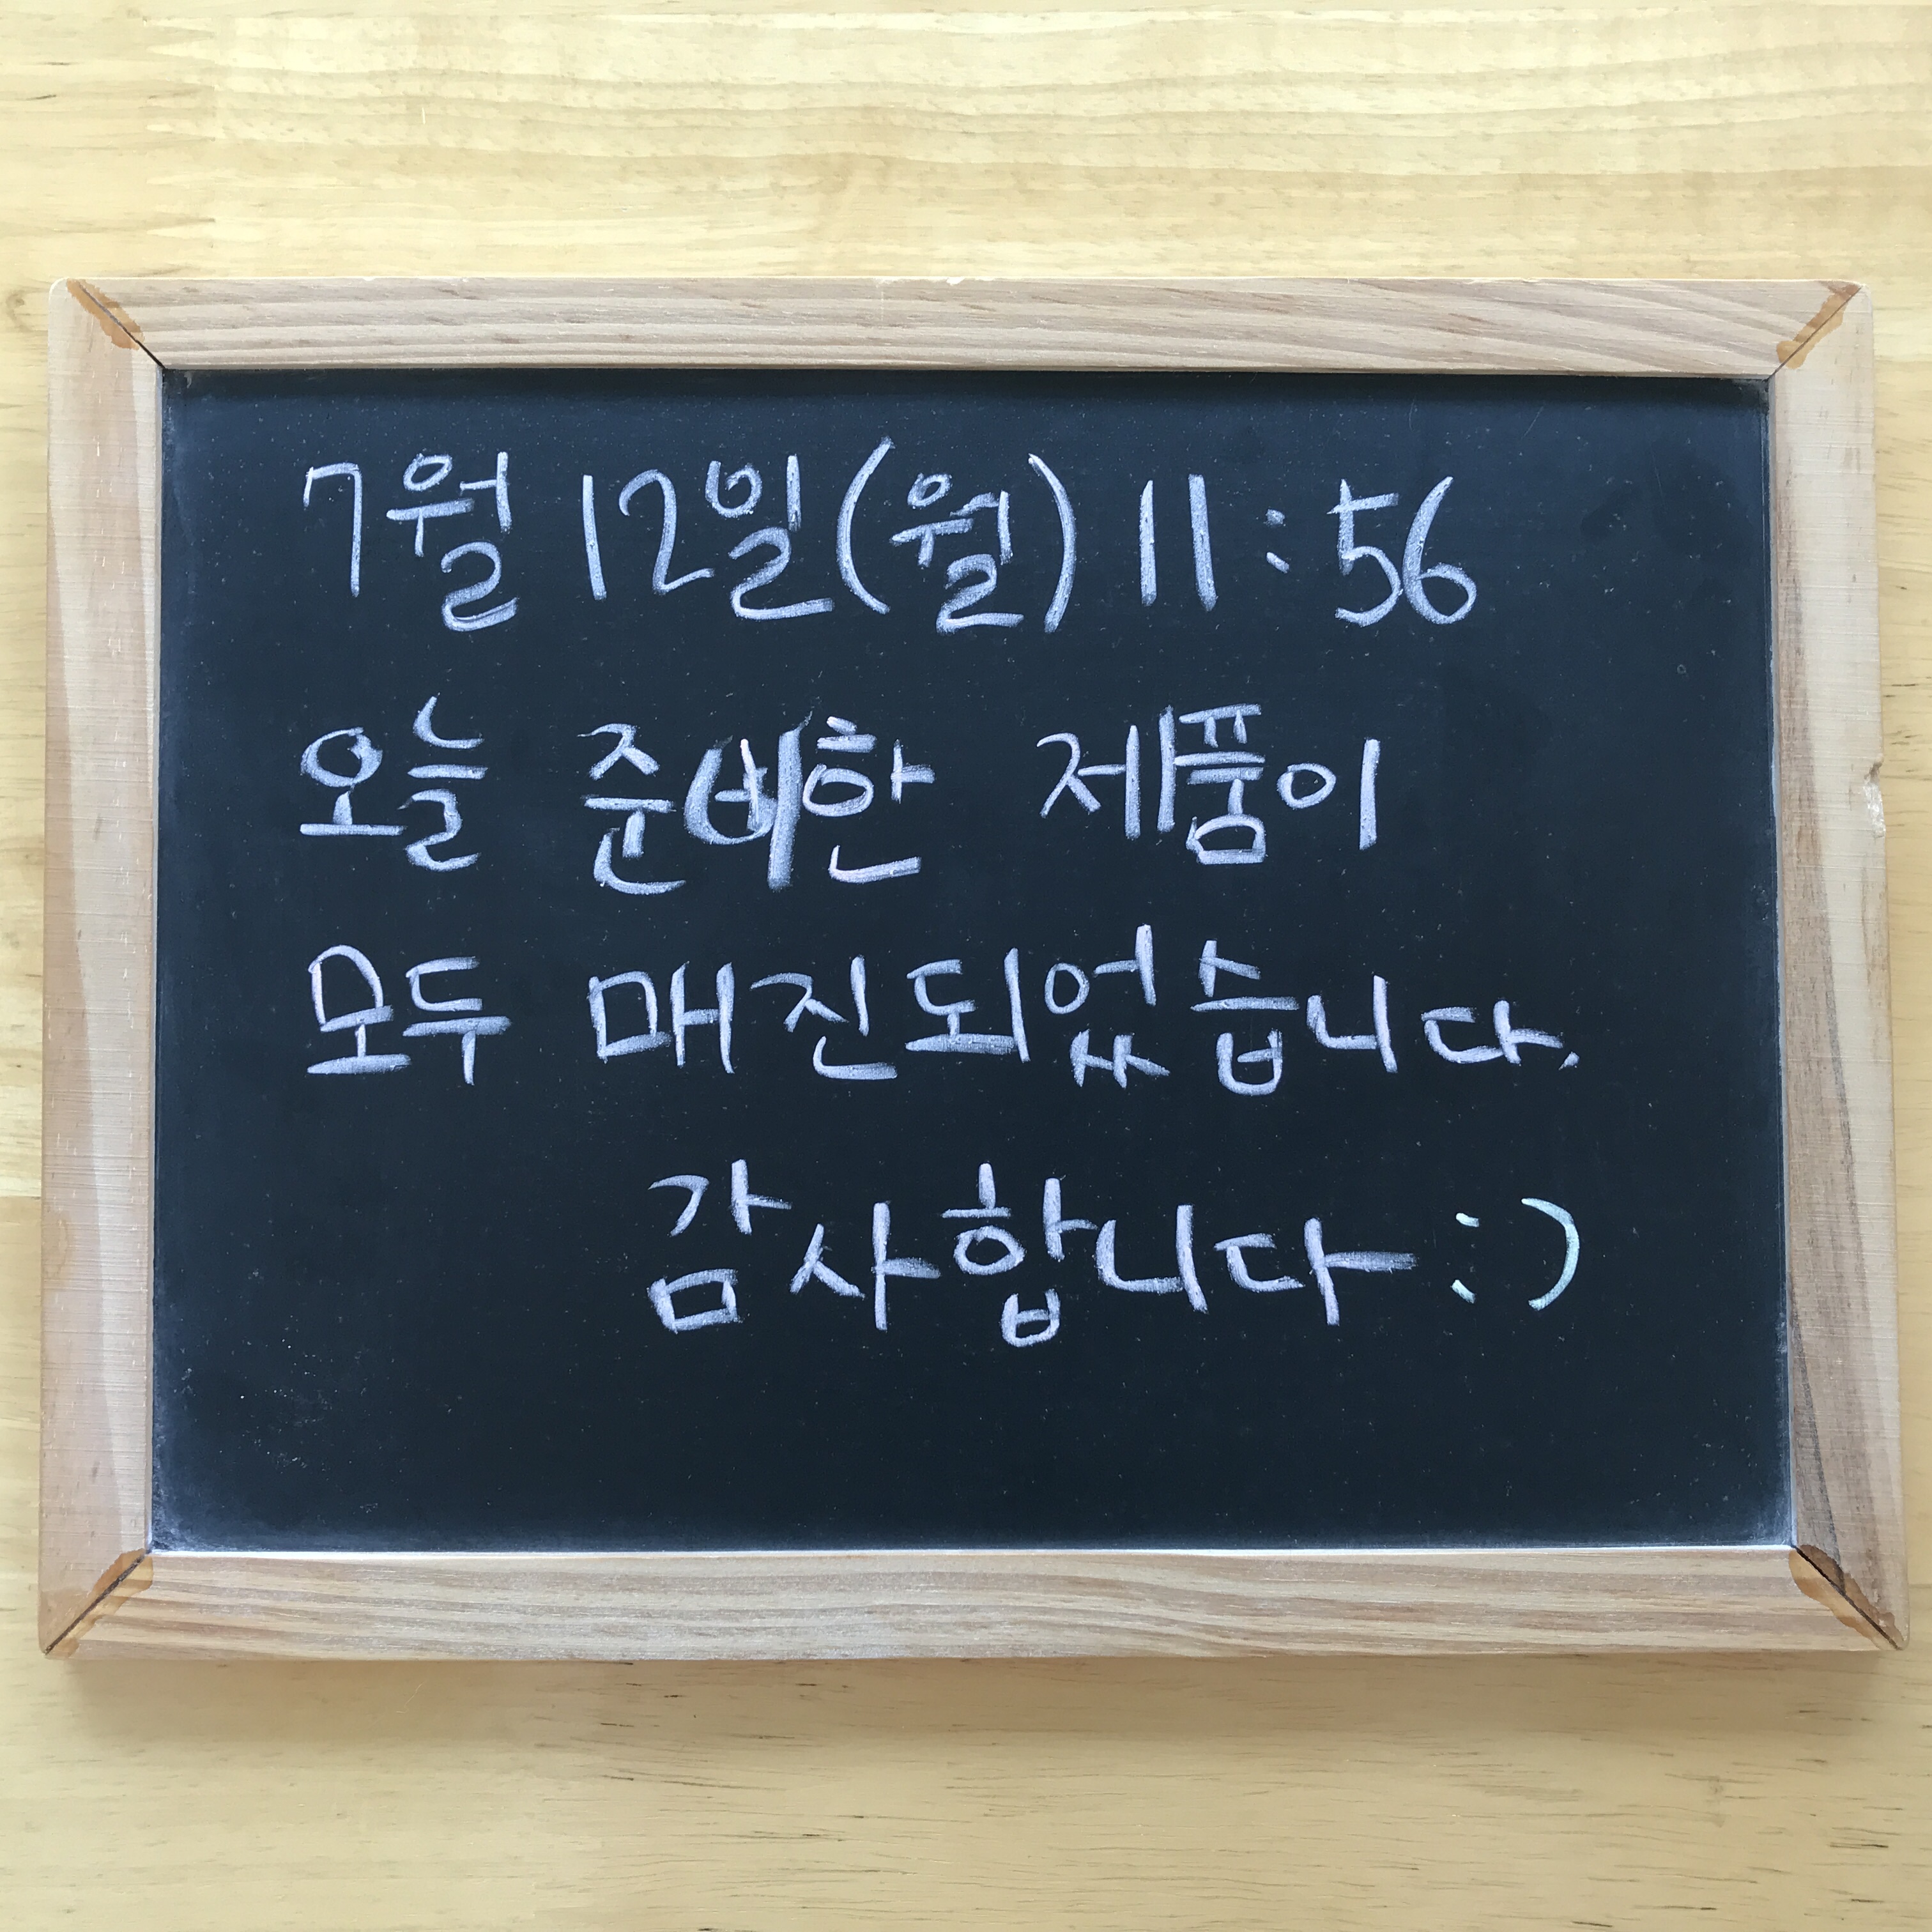 7월 12일(월) 11:56
오늘 준비한 제품이
모두 매진되었습니다.
감사합니다 :)